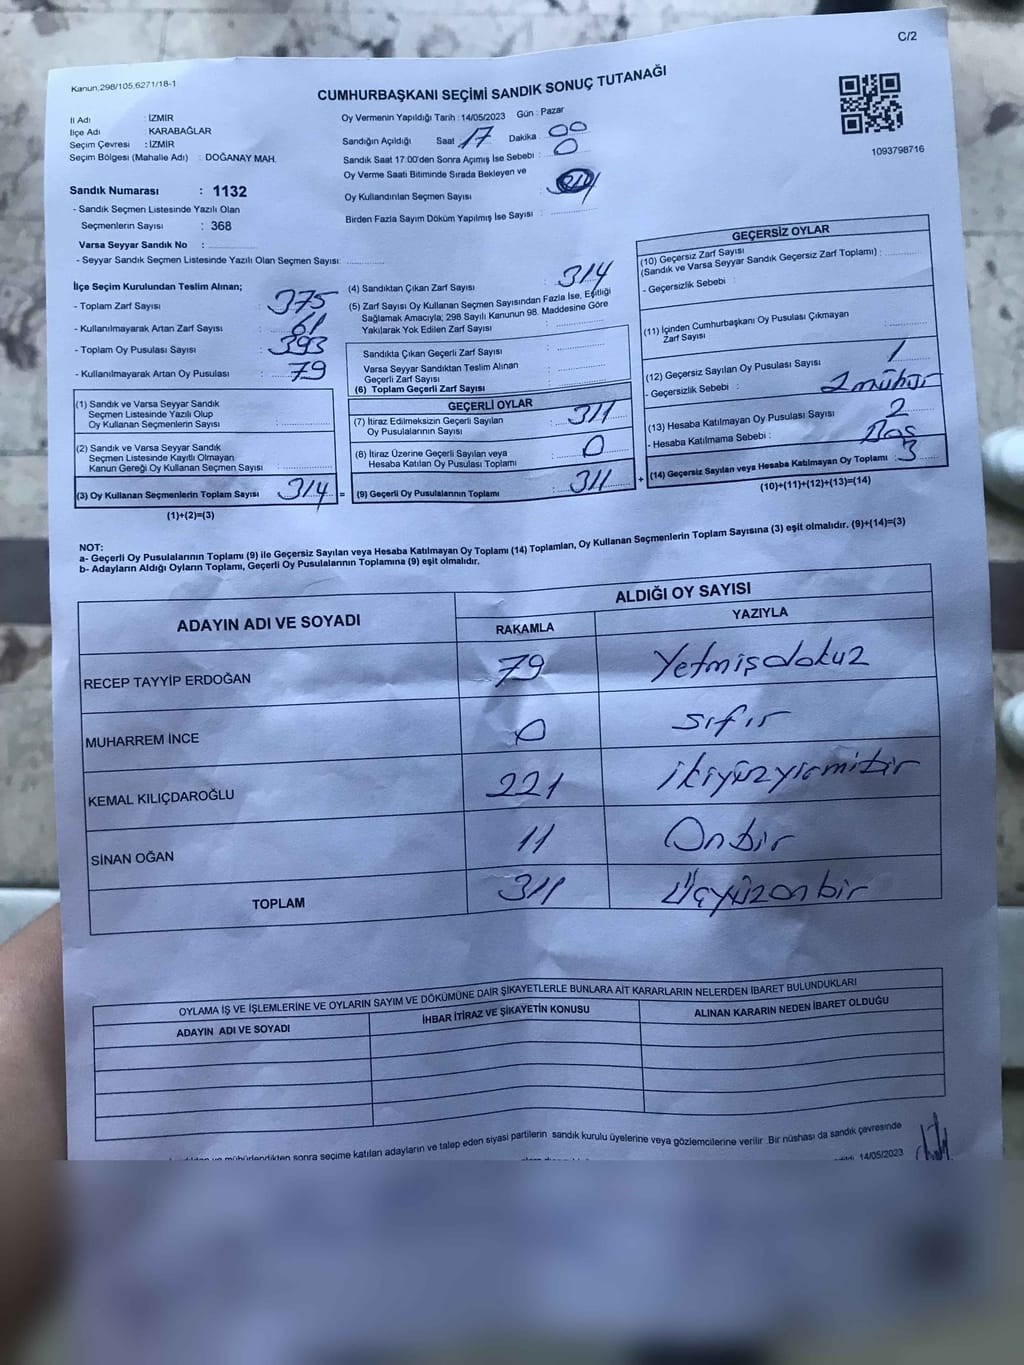 C/2
Kanun,298/105,6271/18-1
CUMHURBAŞKANI SEÇİMİ SANDIK SONUÇ TUTANAĞI
1093798716
İl Adı : İZMİR
İlçe Adı : KARABAĞLAR
Seçim Çevresi : İZMİR
Seçim Bölgesi (Mahalle Adı) : DOĞANAY MAH.
Sandık Numarası : 1132
- Sandık Seçmen Listesinde Yazılı Olan
Seçmenlerin Sayısı : 368
Varsa Seyyar Sandık No :
- Seyyar Sandık Seçmen Listesinde Yazılı Olan Seçmen Sayısı:
Oy Vermenin Yapıldığı Tarih : 14/05/2023 Gün : Pazar
Sandığın Açıldığı Saat 17 Dakika 00
Sandık Saat 17:00'den Sonra Açımış İse Sebebi : 0
Oy Verme Saati Bitiminde Sırada Bekleyen ve
Oy Kullandırılan Seçmen Sayısı :
Birden Fazla Sayım Döküm Yapılmış İse Sayısı :
İlçe Seçim Kurulundan Teslim Alınan;
- Toplam Zarf Sayısı : 375
- Kullanılmayarak Artan Zarf Sayısı : 61
- Toplam Oy Pusulası Sayısı : 393
- Kullanılmayarak Artan Oy Pusulası : 79
(1) Sandık ve Varsa Seyyar Sandık
Seçmen Listesinde Yazılı Olup
Oy Kullanan Seçmenlerin Sayısı :
(2) Sandık ve Varsa Seyyar Sandık
Seçmen Listesinde Kayıtlı Olmayan
Kanun Gereği Oy Kullanan Seçmen Sayısı :
(3) Oy Kullanan Seçmenlerin Toplam Sayısı : 314 =
(1)+(2)=(3)
(4) Sandıktan Çıkan Zarf Sayısı : 314
(5) Zarf Sayısı Oy Kullanan Seçmen Sayısından Fazla İse, Eşitliği
Sağlamak Amacıyla; 298 Sayılı Kanunun 98. Maddesine Göre
Yakılarak Yok Edilen Zarf Sayısı :
Sandıkta Çıkan Geçerli Zarf Sayısı :
Varsa Seyyar Sandıktan Teslim Alınan
Geçerli Zarf Sayısı :
(6) Toplam Geçerli Zarf Sayısı :
GEÇERLİ OYLAR
(7) İtiraz Edilmeksizin Geçerli Sayılan
Oy Pusulalarının Sayısı : 311
(8) İtiraz Üzerine Geçerli Sayılan veya
Hesaba Katılan Oy Pusulası Toplamı : 0
(9) Geçerli Oy Pusulalarının Toplamı : 311 +
GEÇERSİZ OYLAR
(10) Geçersiz Zarf Sayısı
(Sandık ve Varsa Seyyar Sandık Geçersiz Zarf Toplamı) :
- Geçersizlik Sebebi :
(11) İçinden Cumhurbaşkanı Oy Pusulası Çıkmayan
Zarf Sayısı :
(12) Geçersiz Sayılan Oy Pusulası Sayısı : 1
- Geçersizlik Sebebi : 2 mühür
(13) Hesaba Katılmayan Oy Pusulası Sayısı : 2
- Hesaba Katılmama Sebebi : Boş
(14) Geçersiz Sayılan veya Hesaba Katılmayan Oy Toplamı : 3
(10)+(11)+(12)+(13)=(14)
NOT:
a- Geçerli Oy Pusulalarının Toplamı (9) ile Geçersiz Sayılan veya Hesaba Katılmayan Oy Toplamı (14) Toplamları, Oy Kullanan Seçmenlerin Toplam Sayısına (3) eşit olmalıdır. (9)+(14)=(3)
b- Adayların Aldığı Oyların Toplamı, Geçerli Oy Pusulalarının Toplamına (9) eşit olmalıdır.
ADAYIN ADI VE SOYADI
ALDIĞI OY SAYISI
RAKAMLA YAZIYLA
RECEP TAYYİP ERDOĞAN 79 Yetmişdokuz
MUHARREM İNCE 0 sıfır
KEMAL KILIÇDAROĞLU 221 ikiyüzyirmibir
SİNAN OĞAN 11 Onbir
TOPLAM 311 Üçyüzonbir
OYLAMA İŞ VE İŞLEMLERİNE VE OYLARIN SAYIM VE DÖKÜMÜNE DAİR ŞİKAYETLERLE BUNLARA AİT KARARLARIN NELERDEN İBARET BULUNDUKLARI
ADAYIN ADI VE SOYADI İHBAR İTİRAZ VE ŞİKAYETİN KONUSU ALINAN KARARIN NEDEN İBARET OLDUĞU
mühürlendikten sonra seçime katılan adayların ve talep eden siyasi partilerin sandık kurulu üyelerine veya gözlemcilerine verilir. Bir nüshası da sandık çevresinde
14/05/2023